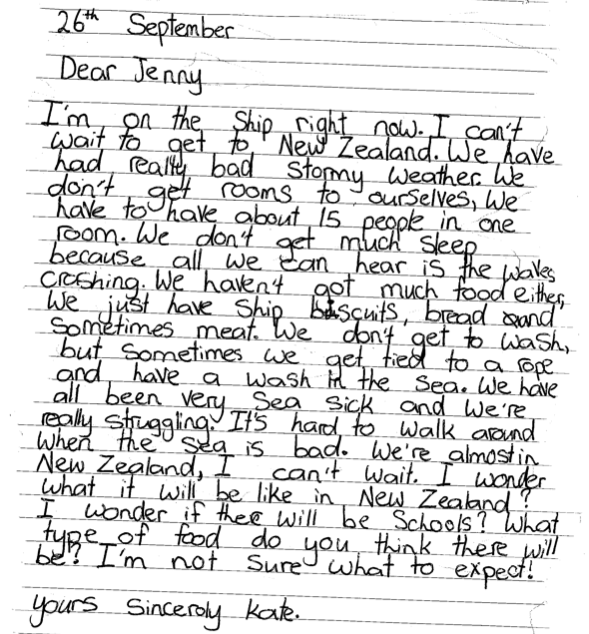 26th September
Dear Jenny
I'm on the Ship right now. I can't
wait to get to New Zealand. We have
had really bad Stormy Weather. We
don't get rooms to ourselves, We
have to have about 15 people in one
room. We don't get much Sleep
because all we can hear is the waves
crashing. We haven't got much food either,
We just have Ship biscuits, bread and
Sometimes meat. We don't get to wash,
but Sometimes we get tied to a rope
and have a wash in the Sea. We have
all been very Sea Sick and We're
really struggling. It's hard to walk around
when the Sea is bad. We're almost in
New Zealand, I can't wait. I wonder
what it will be like in New Zealand?
I wonder if thee will be Schools? What
type of food do you think there will
be? I'm not Sure what to expect!
yours Sinceroly kate.